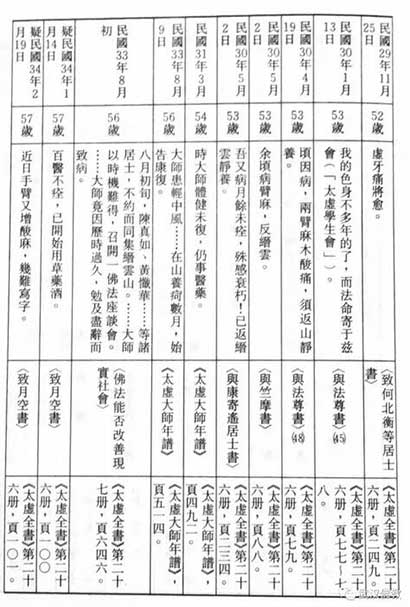 民國29年11月
25日
52
歲
虛牙痛將愈。
〈致何北衡等居士
書〉
《太虛全書》第二十
六册,頁一四九。
民國30年1月
13日
53
歲
我的色身不多年的了,而法命寄于茲
會(「太虛學生會」)。
〈與法尊書〉(45)
《太虛全書》第二十
六册,頁七七~七
八。
民國30年4月
19日
53
歲
頃因病,兩臂麻木酸痛,須返山靜
養。
〈與法尊書〉(48)
《太虛全書》第二十
六册,頁七九。
民國30年5月
2日
53
歲
余頃病臂麻,反縉雲。
〈與竺摩書〉
《太虛全書》第二十
六册,頁八八。
民國30年5月
2日
53
歲
吾又病月餘未痊,殊感衰朽!已返縉
雲靜養。
〈與康寄遙居士書〉
《太虛全書》第二十
六册,頁二三四。
民國31年3月
54
歲
時大師體健未復,仍事醫藥。
《太虛大師年譜》
《太虛大師年譜》,
頁四九二。
民國33年8月
9日
56
歲
大師患輕中風……在山養疴數月,始
告康復。
《太虛大師年譜》
《太虛大師年譜》,
頁五一四。
民國33年8月
初
56
歲
八月初旬,陳真如、黃懺華……等諸
居士,不約而同集縉雲山。……大師
以時機難得,召開 佛法座談會。
……大師竟因歷時過久,勉及盡辭而
致病。
〈佛法能否改善現
實社會〉
《太虛全書》第二十
七册,頁六四六。
疑民國34年1
月14日
57
歲
百醫不痊,已開始用草藥酒。
〈致月空書〉
《太虛全書》第二十
六册,頁一〇〇
疑民國34年2
月19日
57
歲
近日手臂又增酸麻,幾難寫字。
〈致月空書〉
《太虛全書》第二十
六册,頁一〇一。
武汉佛教